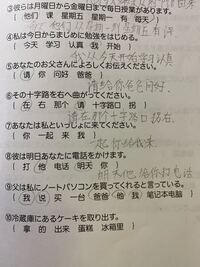 ③彼らは月曜日から金曜日まで毎日授業があります。
(他们 课 星期五 星期一 有 每天)
④私は今日からまじめに勉強をはじめる。
(今天 学习 认真 我 开始)
我从今天开始学习认真
⑤あなたのお父さんによろしくお伝えください。
(请 你 问好 爸爸)
请给你爸爸问好
⑥その十字路を右へ曲がってください。
(在 右 那个 请 十字路口 拐)
请在那个十字路口右拐
⑦あなたは私といっしょに来てください。
(你 一起 来 我)
一起 你给我来
⑧彼は明日あなたに電話をかけます。
(打 他 电话 明天 你)
明天他给你打电话
⑨父は私にノートパソコンを買ってくれると言っている。
(我 说 买 一台 爸爸 他 我 笔记本电脑)
⑩冷蔵庫にあるケーキを取り出す。
(拿 的 出来 蛋糕 冰箱里)